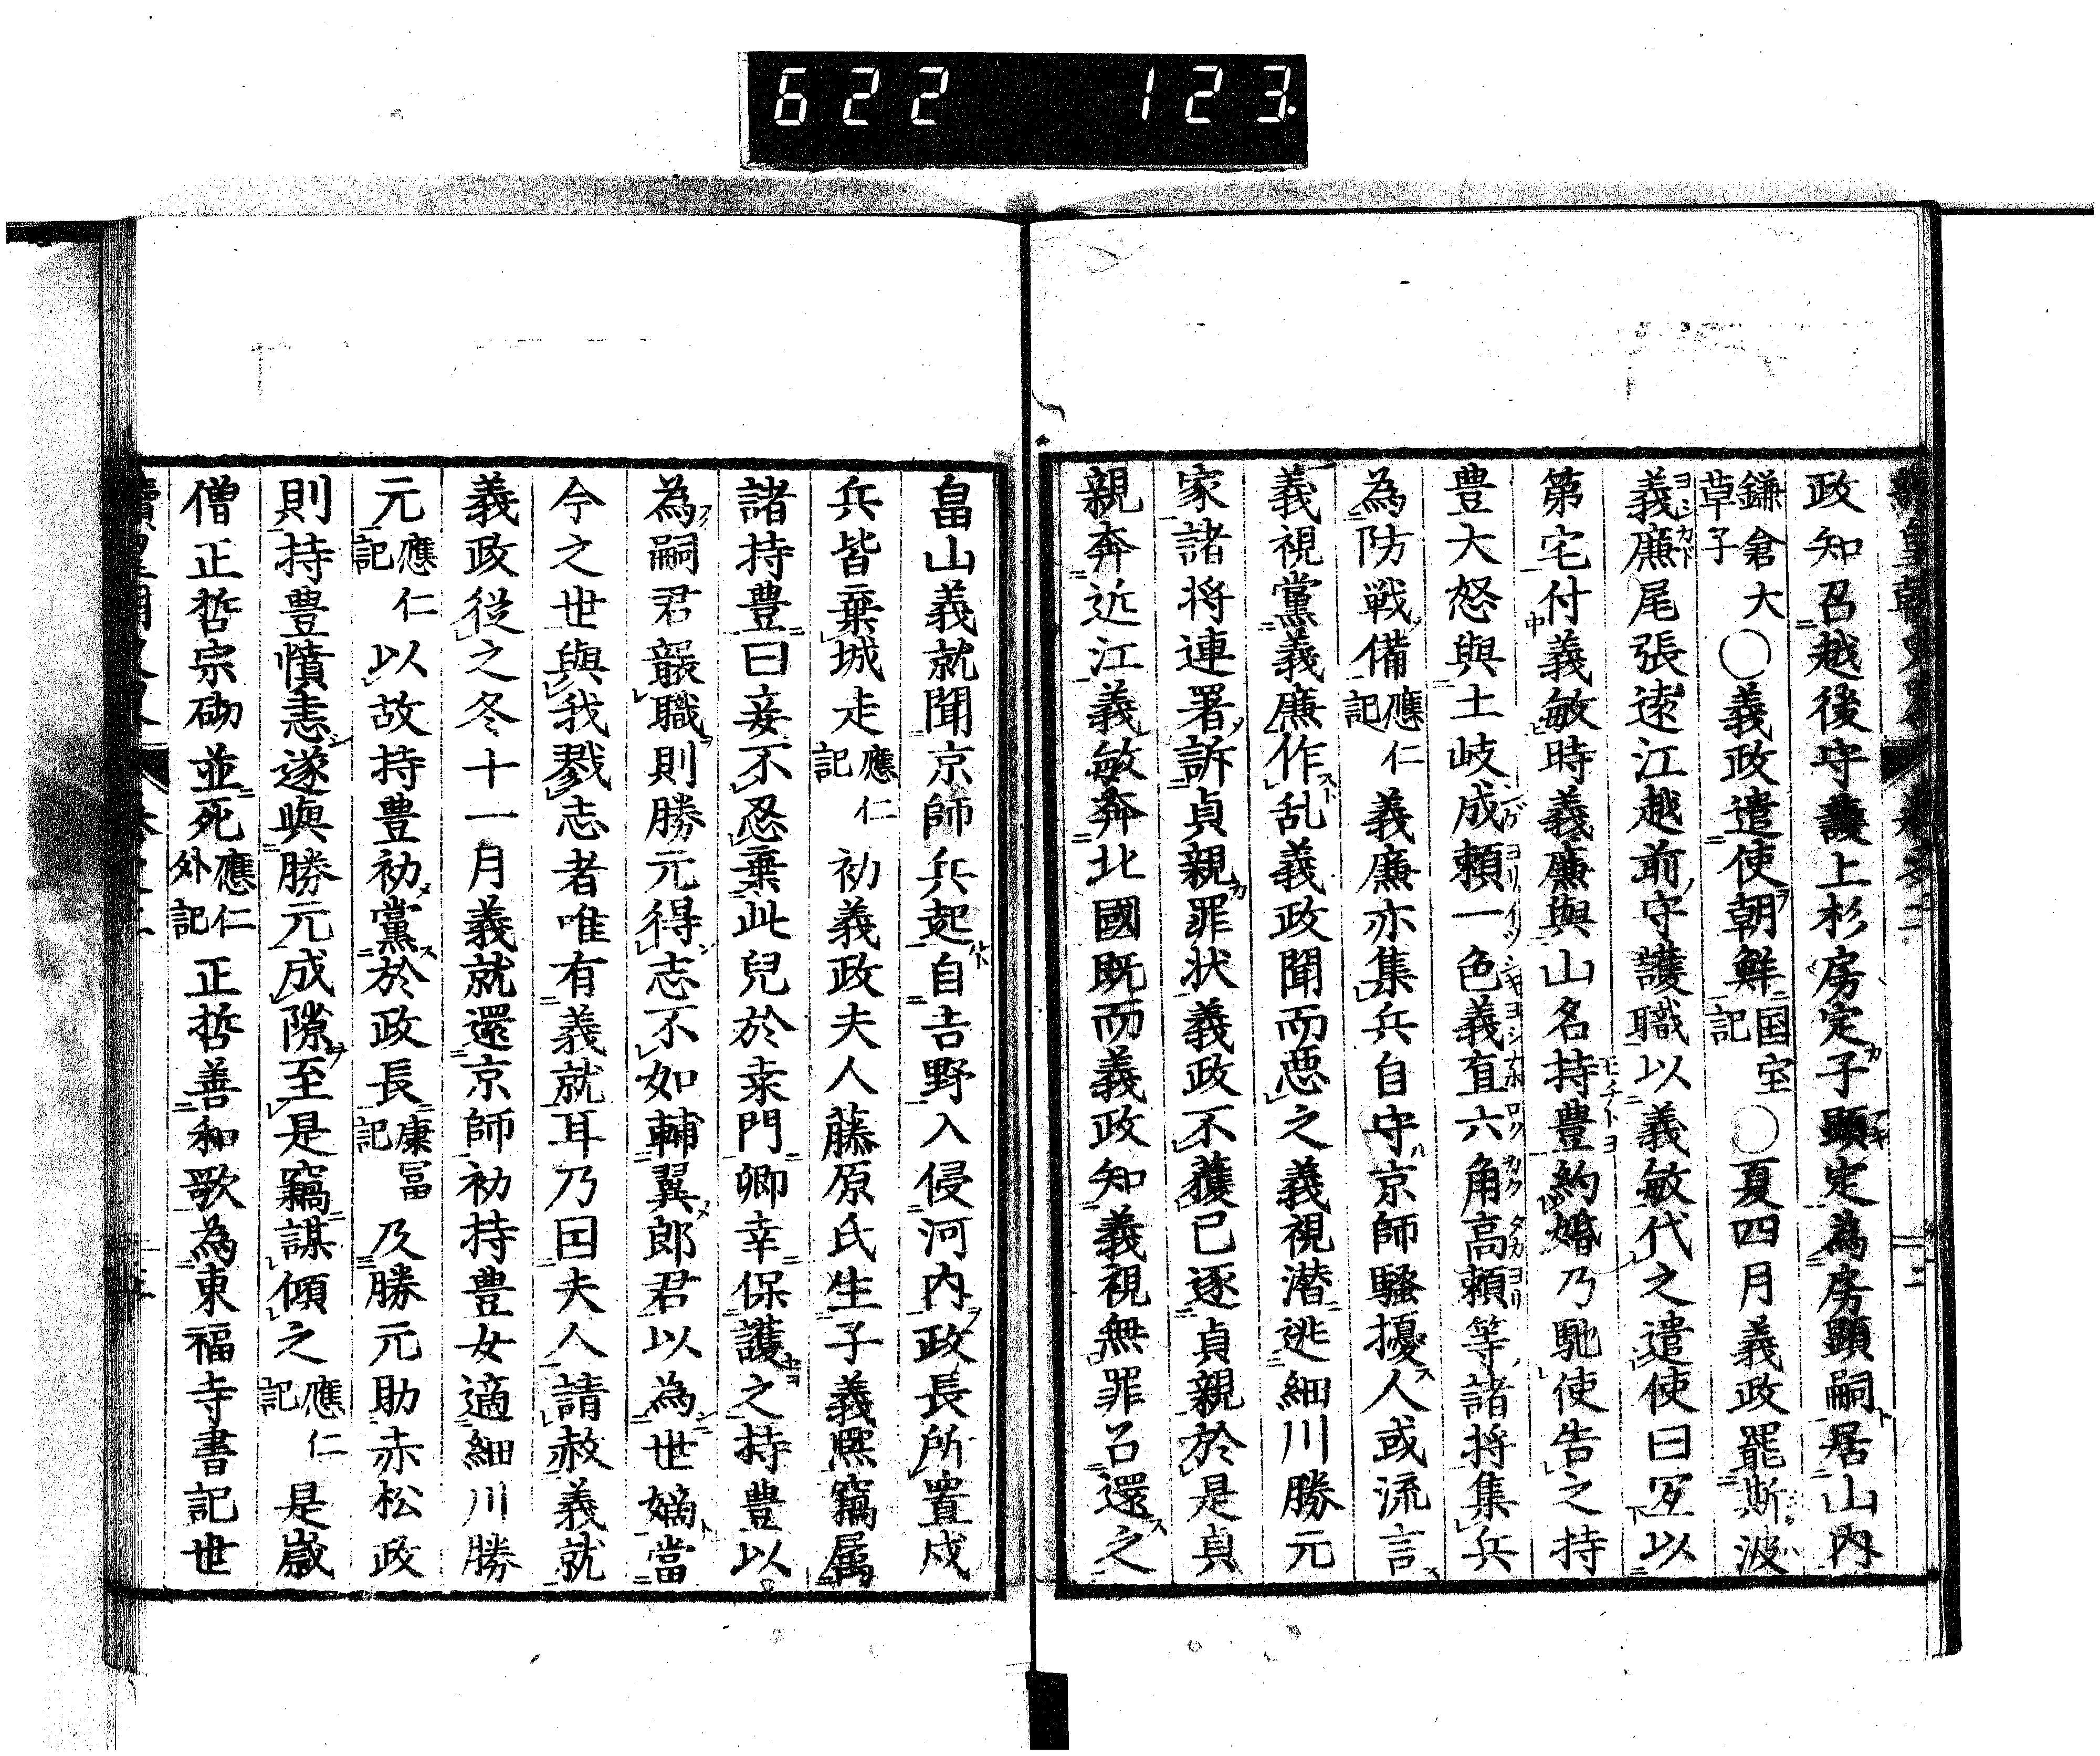 622 123.
政知召越後守護上杉房定子顕定為房顕嗣居山内
鎌倉大草子○義政遣使朝鮮国宝記○夏四月義政罷斯波
義廉尾張遠江越前守護職以義敏代之遣使曰宜以
第宅付義敏時義廉與山名持豊約婚乃馳使告之持
豊大怒與土岐成頼一色義直六角高頼等諸将集兵
為防戦備應仁記義廉亦集兵自守京師騒擾人或流言
義視黨義廉作乱義政聞而悪之義視潜逃細川勝元
家諸将連署訴貞親罪状義政不獲已逐貞親於是貞
親奔近江義敏奔北國既而義政知義視無罪召還之
畠山義就聞京師兵起自吉野入侵河内政長所置戍
兵皆棄城走應仁記初義政夫人藤原氏生子義熈竊属
諸持豊曰妾不忍棄此兒於桒門卿幸保護之持豊以
為嗣君襲職則勝元得志不如輔翼郎君以為世嫡當
今之世與我戮志者唯有義就耳乃因夫人請赦義就
義政從之冬十一月義就還京師初持豊女適細川勝
元應仁記以故持豊初黨於政長康冨記及勝元助赤松政
則持豊憤恚遂與勝元成隙至是竊謀傾之應仁記是歳
僧正哲宗砌並死應仁外記正哲善和歌為東福寺書記世